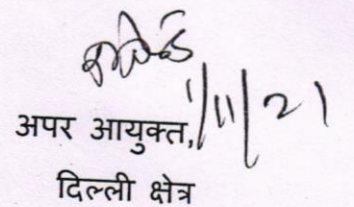 1/11/21
अपर आयुक्त,
दिल्ली क्षेत्र